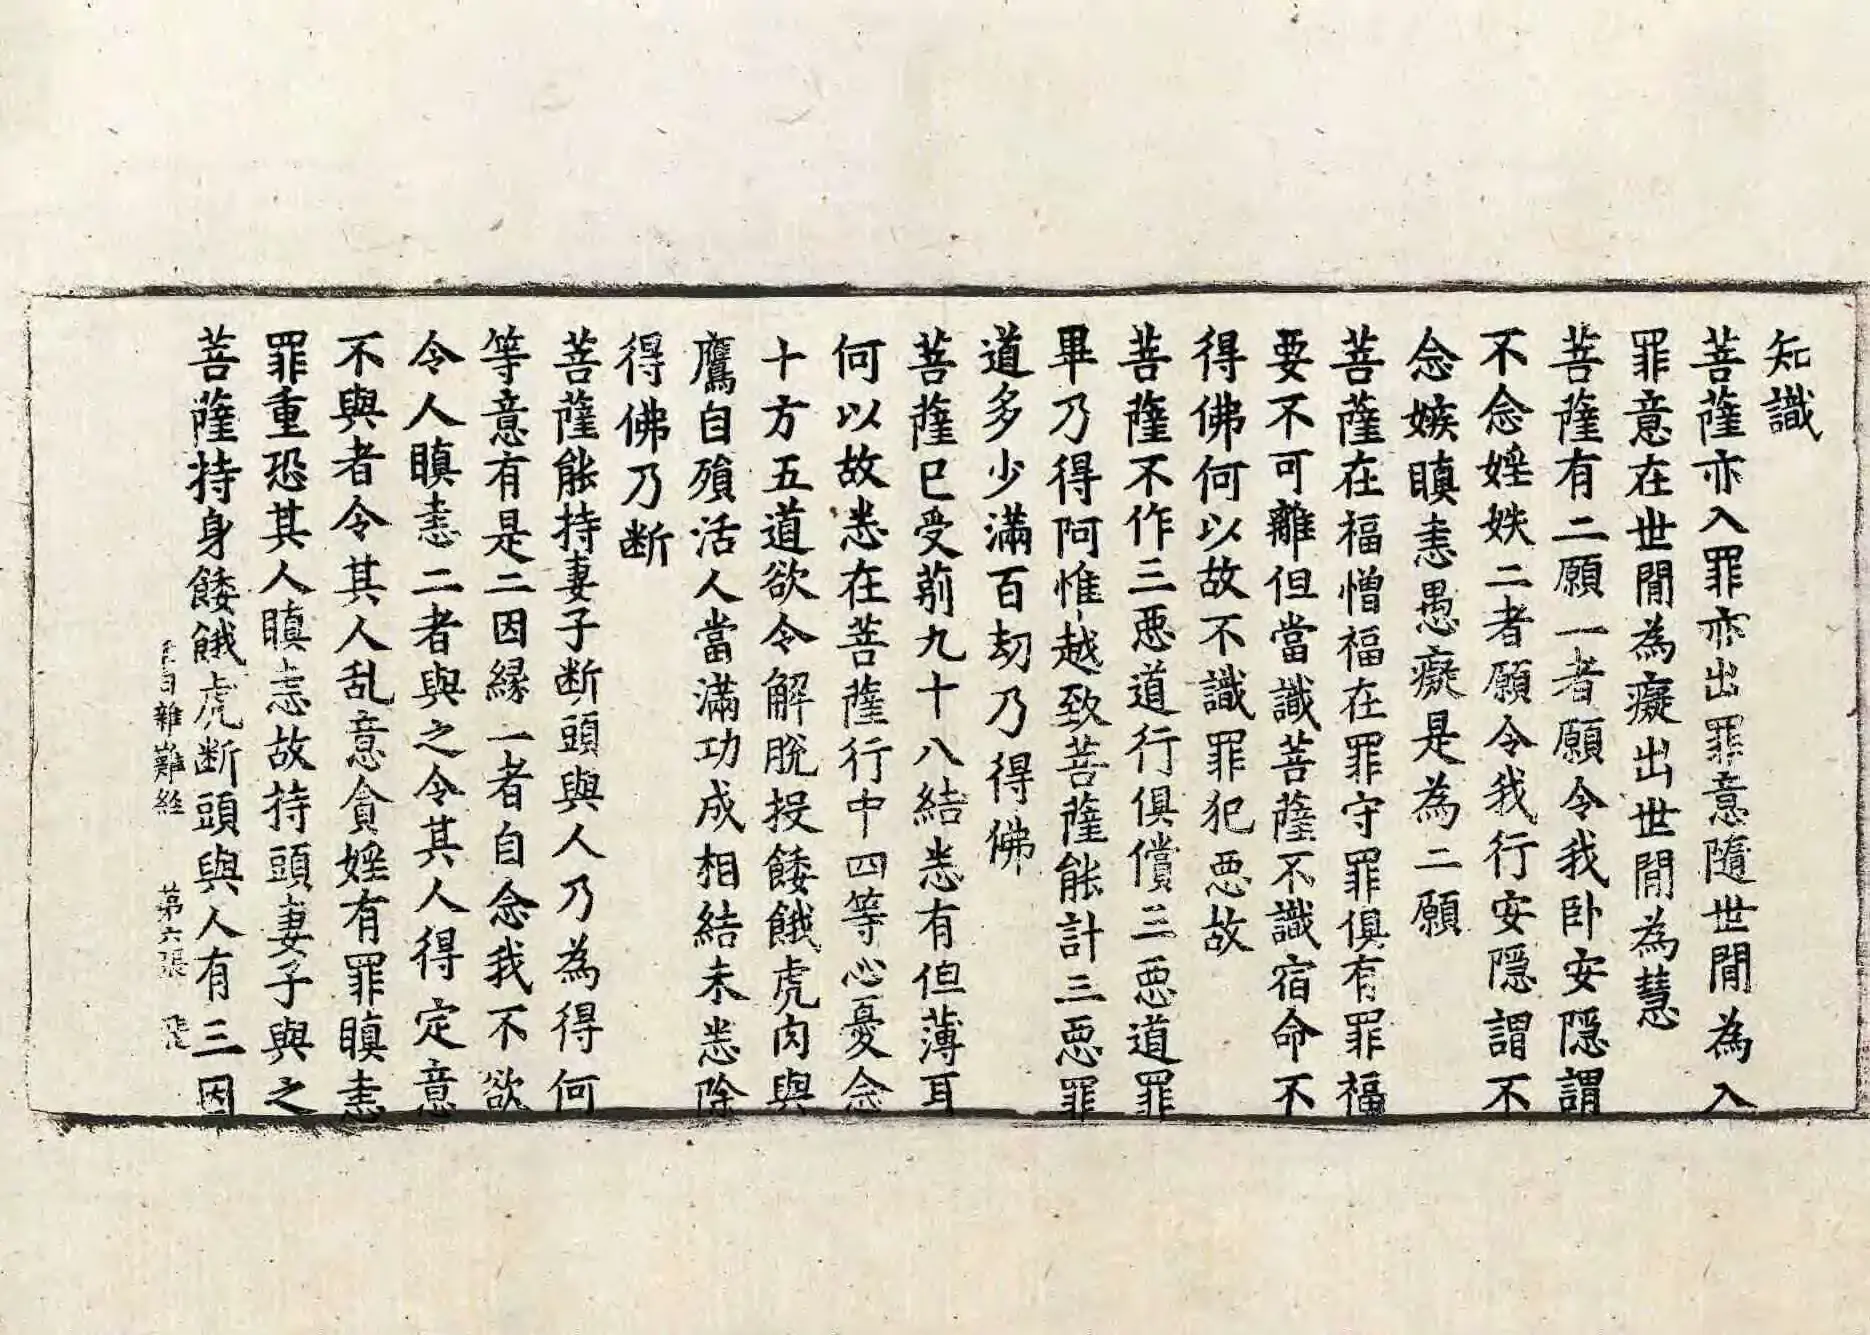 知識
菩薩亦入罪亦出罪意隨世間為入
罪意在世間為癡出世間為慧
菩薩有二願一者願令我卧安隠謂
不念婬妷二者願令我行安隠謂不
念嫉瞋恚愚癡是為二願
菩薩在福憎福在罪守罪俱有罪福
要不可離但當識菩薩不識宿命不
得佛何以故不識罪犯惡故
菩薩不作三惡道行俱償三惡道罪
畢乃得阿惟越致菩薩能計三惡罪
道多少滿百劫乃得佛
菩薩已受莂九十八結悉有但薄耳
何以故悉在菩薩行中四等心憂念
十方五道欲令解脫投餧餓虎肉與
鷹自殞活人當滿功成相結未悉除
得佛乃断
菩薩能持妻子断頭與人乃為得何
等意有是二因縁一者自念我不欲
令人瞋恚二者與之令其人得定意
不與者令其人乱意貪婬有罪瞋恚
罪重恐其人瞋恚故持頭妻子與之
菩薩持身餧餓虎断頭與人有三因
雜難經 第六張